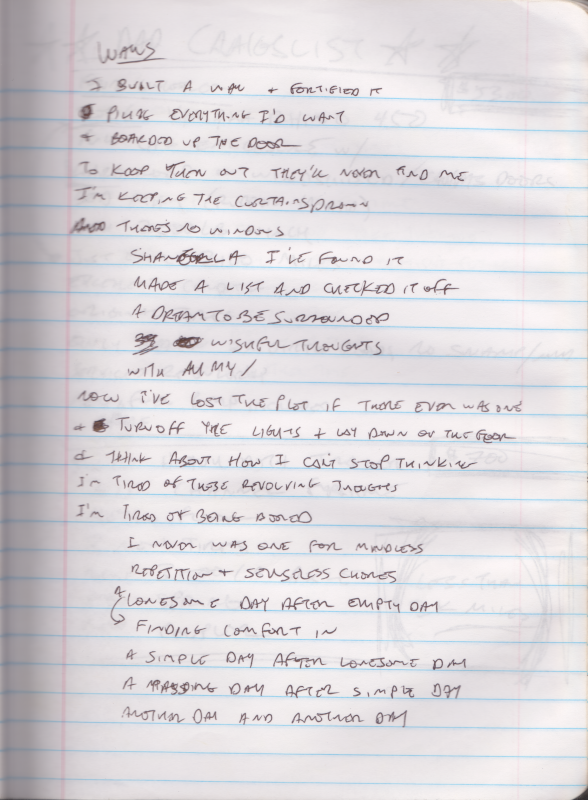 WALLS
I BUILT A WALL + FORTIFIED IT
PILING EVERYTHING I'D WANT
+ BOARDED UP THE DOOR
TO KEEP THEM OUT THEY'LL NEVER FIND ME
I'M KEEPING THE CURTAINS DRAWN
AND THERES NO WINDOWS
I'VE FOUND IT
MADE A LIST AND CHECKED IT OFF
A DREAM TO BE SURROUNDED
WISHFUL THOUGHTS
WITH ALL MY /
NOW I'VE LOST THE PLOT IF THERE EVER WAS ONE
+ TURN OFF THE LIGHTS + LAY DOWN ON THE FLOOR
+ THINK ABOUT HOW I CAN'T STOP THINKING
I'M TIRED OF THESE REVOLVING THOUGHTS
I'M TIRED OF BEING BORED
I NEVER WAS ONE FOR MINDLESS
REPETITION + SENSELESS CHORES
LONESOME DAY AFTER EMPTY DAY
FINDING COMFORT IN
A SIMPLE DAY AFTER LONESOME DAY
A PASSING DAY AFTER SIMPLE DAY
ANOTHER DAY AND ANOTHER DAY